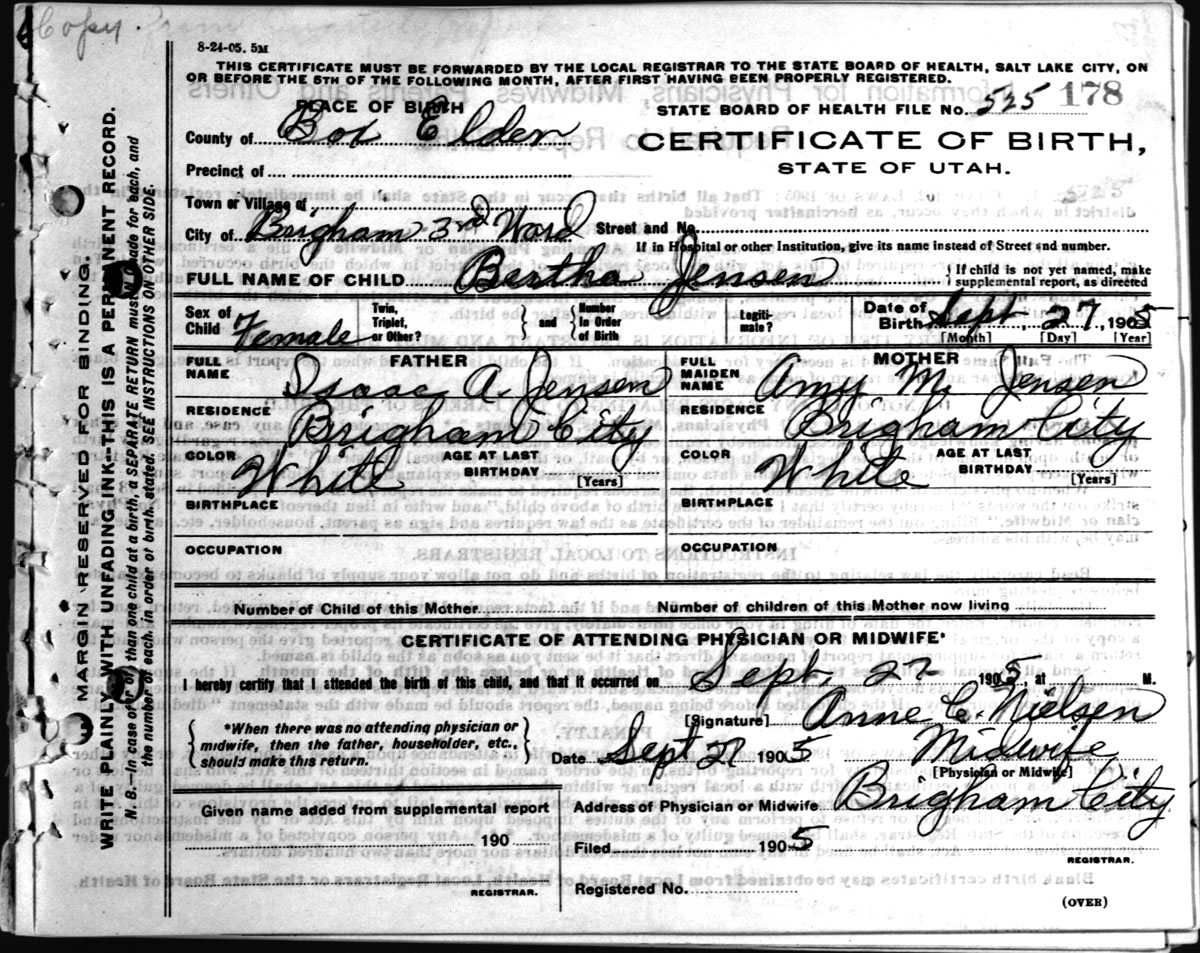 Copy.
8-24-05. 5M
THIS CERTIFICATE MUST BE FORWARDED BY THE LOCAL REGISTRAR TO THE STATE BOARD OF HEALTH, SALT LAKE CITY, ON
OR BEFORE THE 5TH OF THE FOLLOWING MONTH, AFTER FIRST HAVING BEEN PROPERLY REGISTERED.
PLACE OF BIRTH
STATE BOARD OF HEALTH FILE No. 525 178
County of Box Elder
CERTIFICATE OF BIRTH,
STATE OF UTAH.
Precinct of
Town or Village of
City of Brigham 3rd Ward Street and No.
If in Hospital or other Institution, give its name instead of Street and number.
FULL NAME OF CHILD Bertha Jensen } If child is not yet named, make
supplemental report, as directed
Sex of Child Female Twin, Triplet, or Other? } and { Number In Order of Birth Legiti-mate? Date of Birth Sept 27, 1905
[Month] [Day] [Year]
FATHER MOTHER
FULL NAME Isaac A. Jensen FULL MAIDEN NAME Amy M. Jensen
RESIDENCE Brigham City RESIDENCE Brigham City
COLOR White AGE AT LAST BIRTHDAY [Years] COLOR White AGE AT LAST BIRTHDAY [Years]
BIRTHPLACE BIRTHPLACE
OCCUPATION OCCUPATION
Number of Child of this Mother Number of children of this Mother now living
CERTIFICATE OF ATTENDING PHYSICIAN OR MIDWIFE*
I hereby certify that I attended the birth of this child, and that it occurred on Sept. 27 1905, at M.
[Signature] Anne C. Nielsen
{ *When there was no attending physician or
midwife, then the father, householder, etc.,
should make this return. }
Date Sept 27 1905 Midwife
[Physician or Midwife]
Given name added from supplemental report
Address of Physician or Midwife Brigham City
190
Filed 1905
REGISTRAR.
REGISTRAR.
Registered No.
(OVER)
MARGIN RESERVED FOR BINDING.
WRITE PLAINLY WITH UNFADING INK--THIS IS A PERMANENT RECORD.
N. B.—In case of more than one child at a birth, a SEPARATE RETURN must be made for each, and
the number of each, in order of birth, stated. SEE INSTRUCTIONS ON OTHER SIDE.